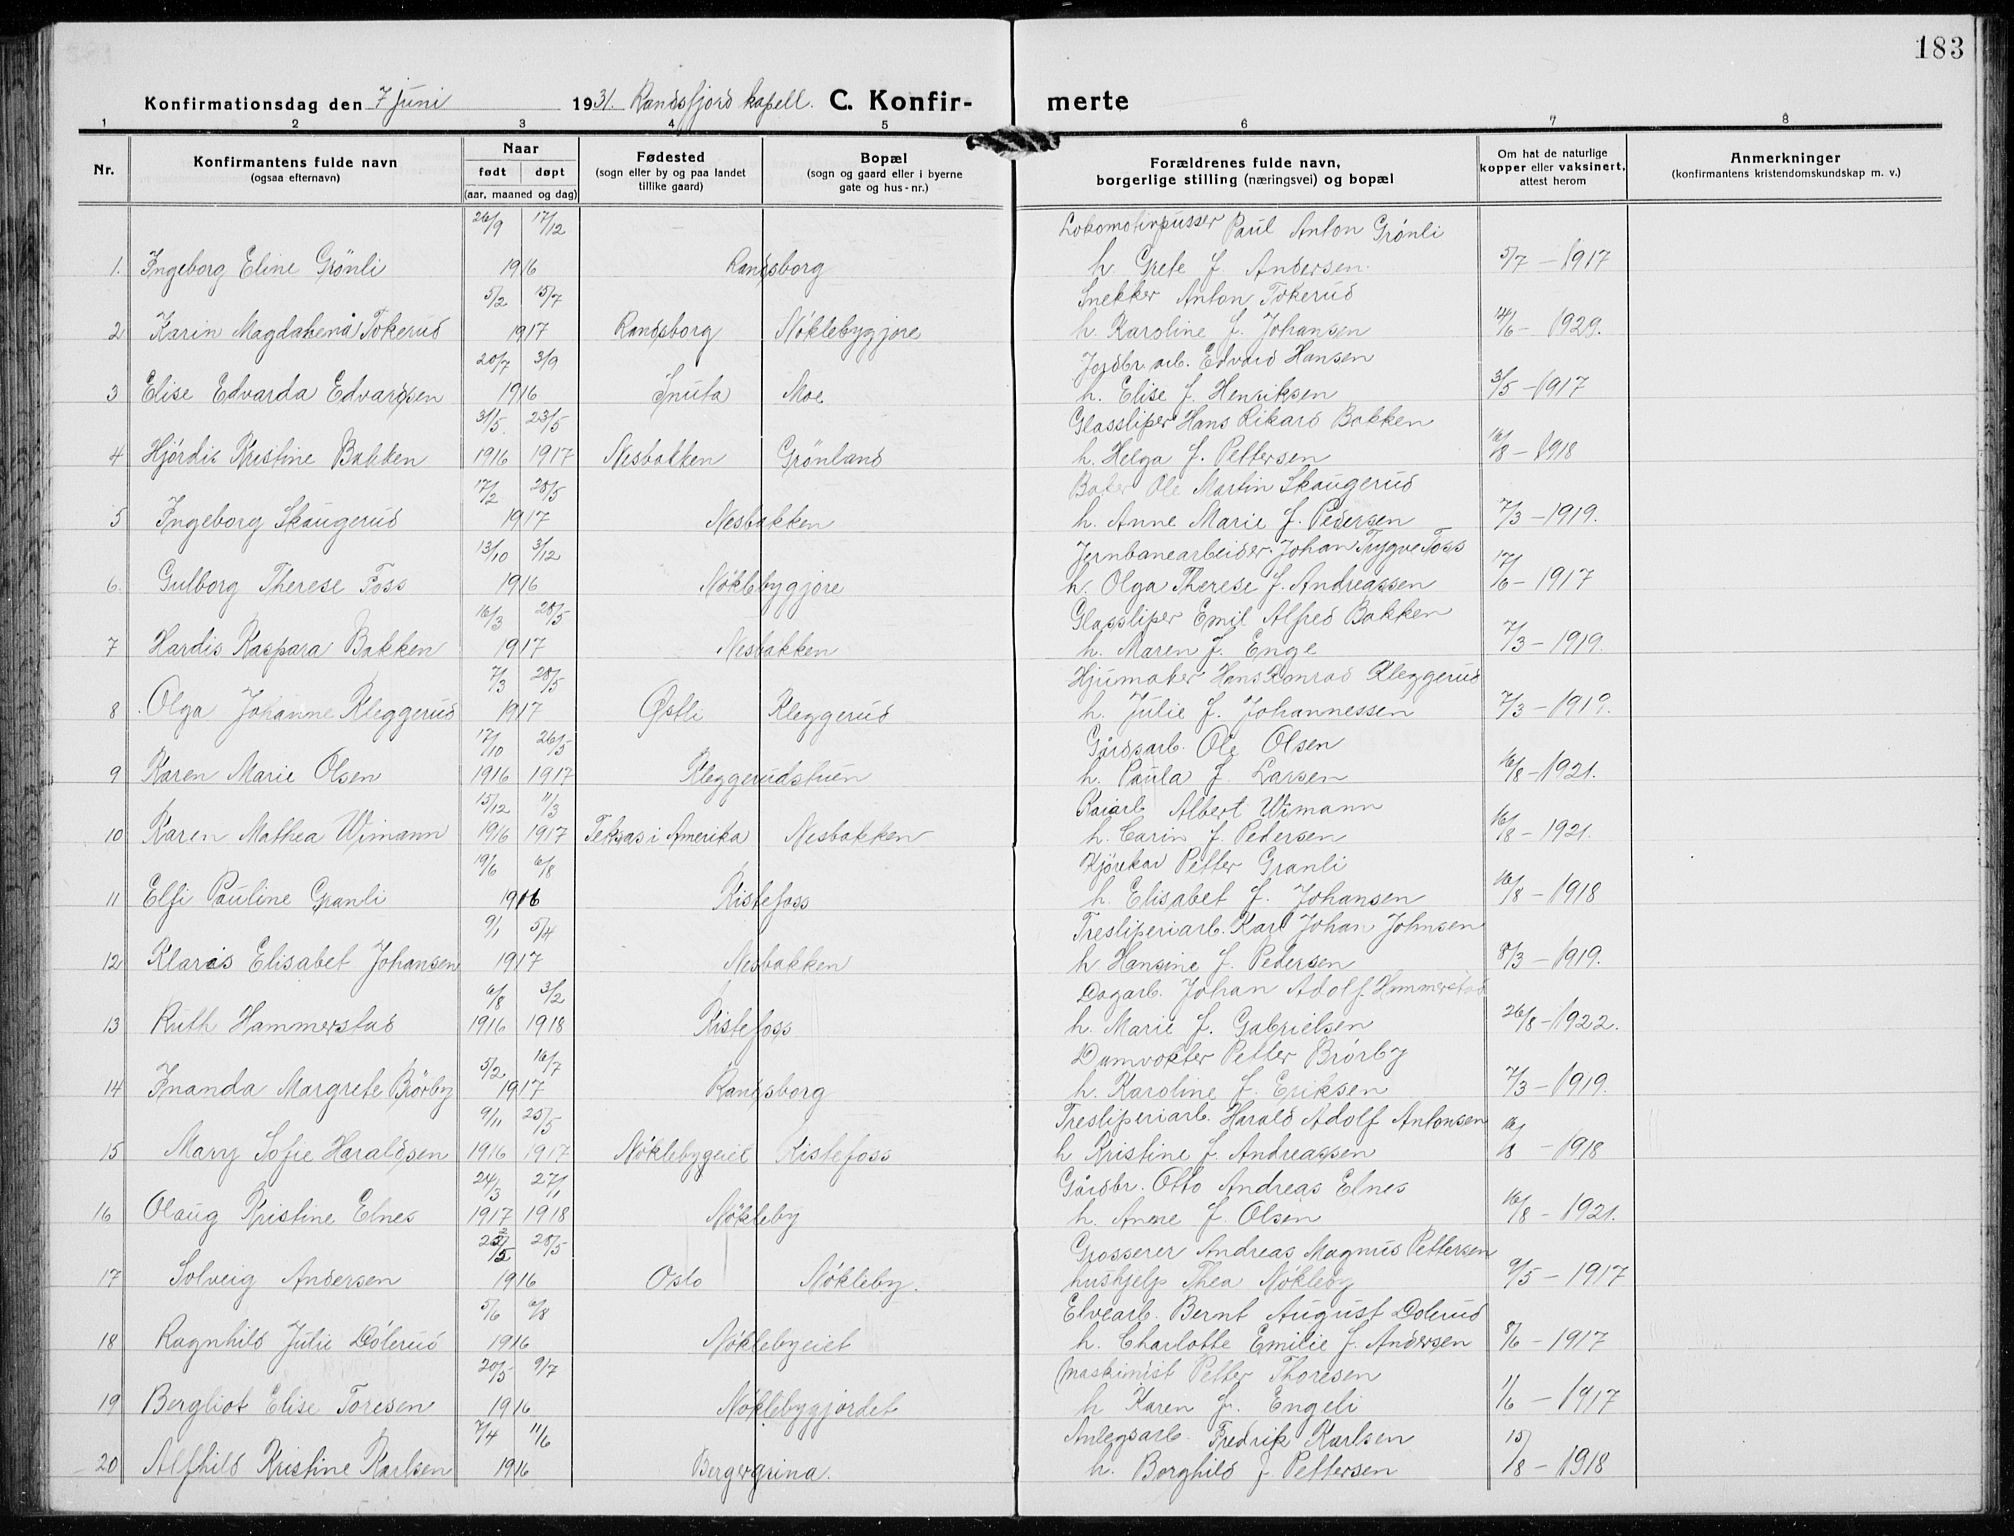 183
Konfirmationsdag den 7 juni 1931. Randsfjord kapell. C. Konfir- merte
1 2 3 4 5 6 7 8
Nr. Konfirmantens fulde navn (ogsaa efternavn) Naar født døpt (aar, maaned og dag) Fødested (sogn eller by og paa landet tillike gaard) Bopæl (sogn og gaard eller i byerne gate og hus-nr.) Forældrenes fulde navn, borgerlige stilling (næringsvei) og bopæl Om hat de naturlige kopper eller vaksinert, attest herom Anmerkninger (konfirmantens kristendomskundskap m. v.)
26/9 17/12 Lokomotivpusser Paul Anton Grønli
1. Ingeborg Eline Grønli 1916 Randsborg h. Grete f. Andersen. 5/7 - 1917
5/2 15/7 Snekker Anton Tokerud
2 Karin Magdalena Tokerud 1917 Randsborg Nøklebygjore h. Karoline f. Johansen 14/6 - 1929.
20/7 3/9 Jordbr. arb. Edvard Hansen
3 Elise Edvarda Edvardsen 1916 Snuta Moe h. Elise f. Henriksen 3/5 - 1917
31/5. 23/5 Glassliper Hans Rikard Bakken
4 Hjørdis Kristine Bakken 1916 1917 Nesbakken Grønland h. Helga f. Pettersen 16/8 - 1918
17/2 28/5 Baker Ole Martin Skaugerud
5 Ingeborg Skaugerud 1917 Nesbakken h. Anne Marie f. Pedersen 7/3 - 1919.
13/10 3/12 Jernbanearbeider Johan Trygve Foss
6. Gulborg Therese Foss 1916 Nøklebygjore h. Olga Therese f. Andreassen 17/6 - 1917
16/3 28/5 Glassliper Emil Alfred Bakken
7 Hardis Kaspara Bakken 1917 Nesbakken h. Maren f. Enge 7/3 - 1919.
7/3 28/5 Hjulmaker Hans Konrad Kleggerud
8 Olga Johanne Kleggerud 1917 Østli Kleggerud h. Julie f. Johannessen 7/3 - 1919.
17/10 26/5 Gårdsarb. Ole Olsen
9 Karen Marie Olsen 1916 1917 Kleggerudstuen h. Paula f. Larsen 16/8 - 1921.
15/12 11/3 Albert Wimann
10 Karen Mathea Wimann 1916 1917 Teksas i Amerika Nesbakken h. Carin f. Pedersen 16/8 - 1921.
19/6 6/8 Kjørekar Petter Granli
11 Elfi Pauline Granli 1916 Kistefoss h. Elisabet f. Johansen 16/8 - 1918
9/1 5/4 Tresliperiarb. Karl Johan Johnsen
12 Klaras Elisabet Johansen 1917 Nesbakken h Hansine f. Pedersen 8/3 - 1919.
6/8 3/2 Dagarb. Johan Adolf Hammerstad
13 Ruth Hammerstad 1916 1918 Kistefoss h. Marie f. Gabrielsen 26/8 - 1922.
5/2 16/7 Damvokter Petter Brørby
14 Inanda Margrete Brørby 1917 Randsborg h. Karoline f. Eriksen 7/3 - 1919.
9/11 25/5 Tresliperiarb. Harald Adolf Antonsen
15 Mary Sofie Haraldsen 1916 1917 Nøklebygeiet Kistefoss h Kristine f. Andreassen 16/8 - 1918
24/3 27/1 Gårdbr. Otto Andreas Elnes
16 Olaug Kristine Elnes 1917 1918 Nøkleby h. Anne f. Olsen 16/8 - 1921.
28/5 Grosserer Andreas Magnus Pettersen
17 Solveig Andersen 1916 Oslo Nøkleby. hushjelp Thea Nøkleby 9/5 - 1917
5/6 6/8 Elvearb. Bernt August Dølerud
18 Ragnhild Julie Dølerud 1916 Nøklebyeiet h. Charlotte Emilie f. Andersen 8/6 - 1917
20/5 9/7 Maskinist Petter Thoresen
19 Bergliot Elise Toresen 1916 Nøklebygjordet h Karen f. Engeli 11/6 - 1917
7/4 11/6 Anlegsarb. Fredrik Karlsen
20 Alfhild Kristine Karlsen 1916 Bergergrina. h. Borghild f Pettersen 15/8 - 1918